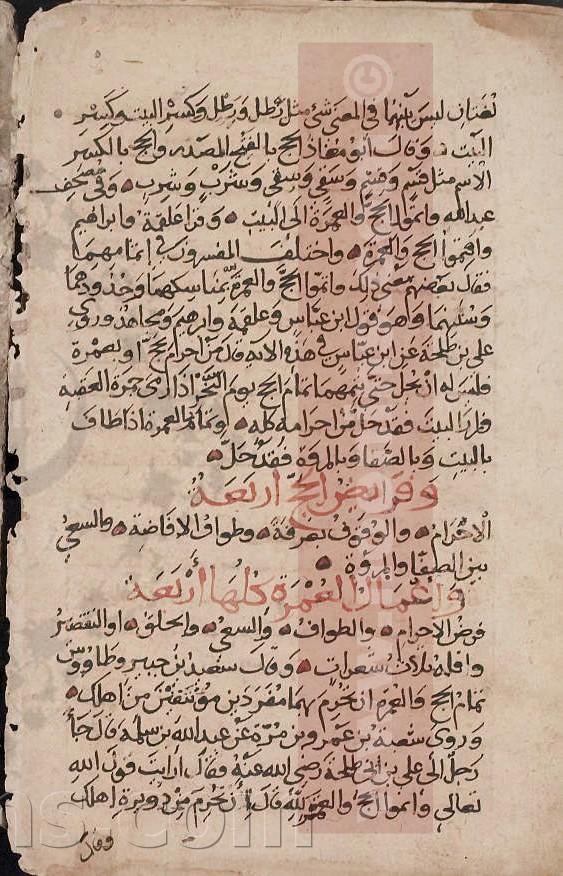 لغتان ليس بينهما في المعنى شئ مثل رَطل ورِطل وكَسْر البيت وكِسْر
البيت وقال ابو معاذ الحج بالفتح المصدر والحج بالكسر
الاسم مثل قَسْم وقِسْم وسَقي وسِقي وشَرْب وشِرب وفي مصحف
عبدالله واتموا الحج والعمرة الى البيت وقرا علقمة وابراهيم
واقيموا الحج والعمرة واختلف المفسرون في اتمامهما
فقال بعضهم معنى ذلك واتموا الحج والعمرة بمناسكهما وحدودهما
وسننهما وهو قول ابن عباس وعلقمة وابرهيم ومجاهد وروى
علي بن طلحة عن ابن عباس في هذه الاية قال من احرم بحج او بعمرة
فليس له ان يحل حتى يتمهما تمام الحج يوم النحر اذا رمى جمرة العقبة
وزار البيت فقد حل من احرامه كله وتمام العمرة اذا طاف
بالبيت وبالصفا وبالمروة فقد حل
وفرايض الحج اربعة
الاحرام والوقوف بعرفة وطواف الافاضة والسعي
بين الصفا والمروة
واعمال العمرة كلها أربعة
فرض الاحرام والطواف والسعي والحلق او التقصير
واقله ثلاث شعرات وقال سعيد بن جبير وطاووس
تمام الحج والعمرة ان تحرم بهما مفردين مؤتنفين من اهلك
وروى شعبة بن عمرو بن مرة عن عبدالله بن سلمة قال جا
رجل الى علي بن ابي طلحة رضي الله عنه فقال أرايت قول الله
تعالى واتموا الحج والعمرة لله قال أن تحرم من دويرة اهلك
وقال
ns.com